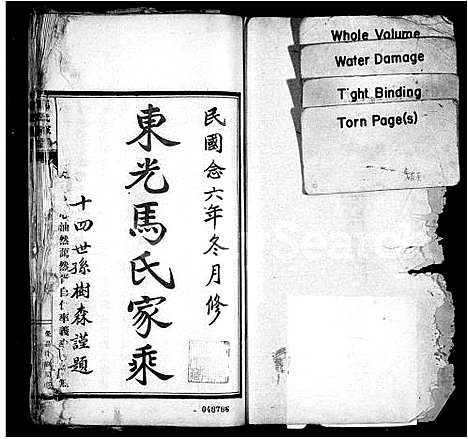 Whole Volume
Water Damage
Tight Binding
Torn Page(s)
民國念六年冬月修
東光馬氏家乘
十四世孫樹森謹題
048786